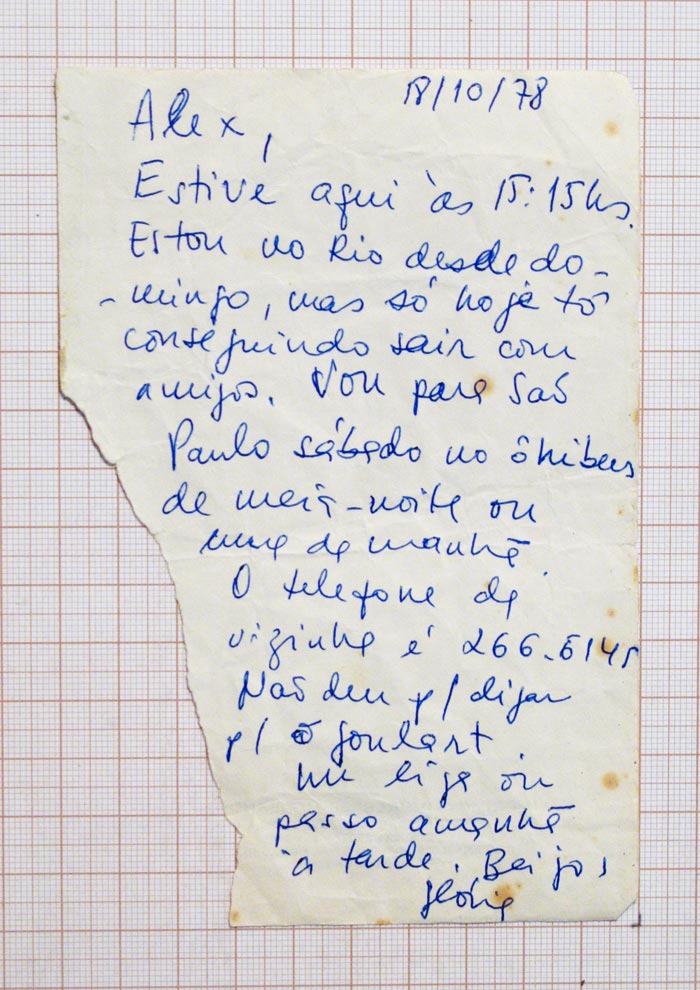 18/10/78
Alex,
Estive aqui às 15:15hs.
Estou no Rio desde do-
-mingo, mas só hoje tô
conseguindo sair com
amigos. Vou para São
Paulo sábado no ônibus
de meia-noite ou
uma da manhã.
O telefone da
vizinha é 266-5145
Não deu p/ ligar
p/ o Goulart.
Me liga ou
passo amanhã
à tarde. Beijos,
Glória